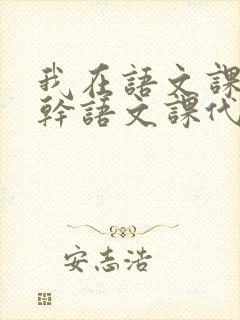 我在語文課
幹語文課代
安志浩